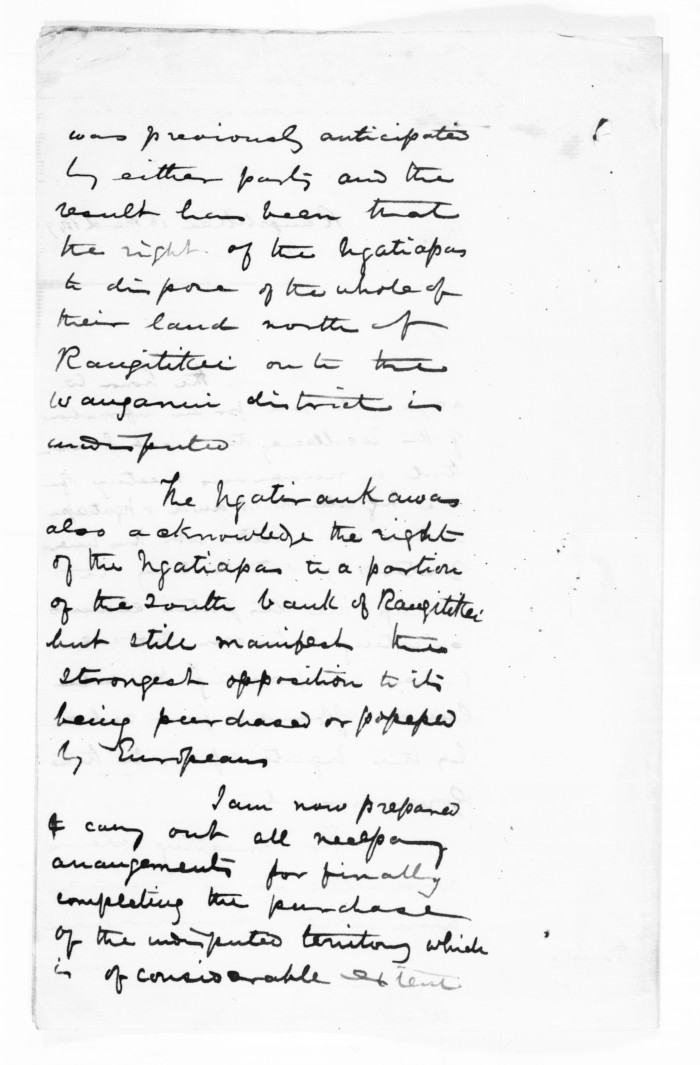 was previously anticipated
by either party and the
result has been that
the right of the Ngatiapas
to dispose of the whole of
their land north of
Rangitikei on to the
Wanganui district is
undisputed
The Ngatiraukawas
also acknowledge the right
of the Ngatiapas to a portion
of the south bank of Rangitikei
but still manifest the
strongest opposition to its
being purchased or possessed
by Europeans
I am now prepared
to carry out all necessary
arrangements for finally
completing the purchase
of the undisputed territory which
is of considerable extent